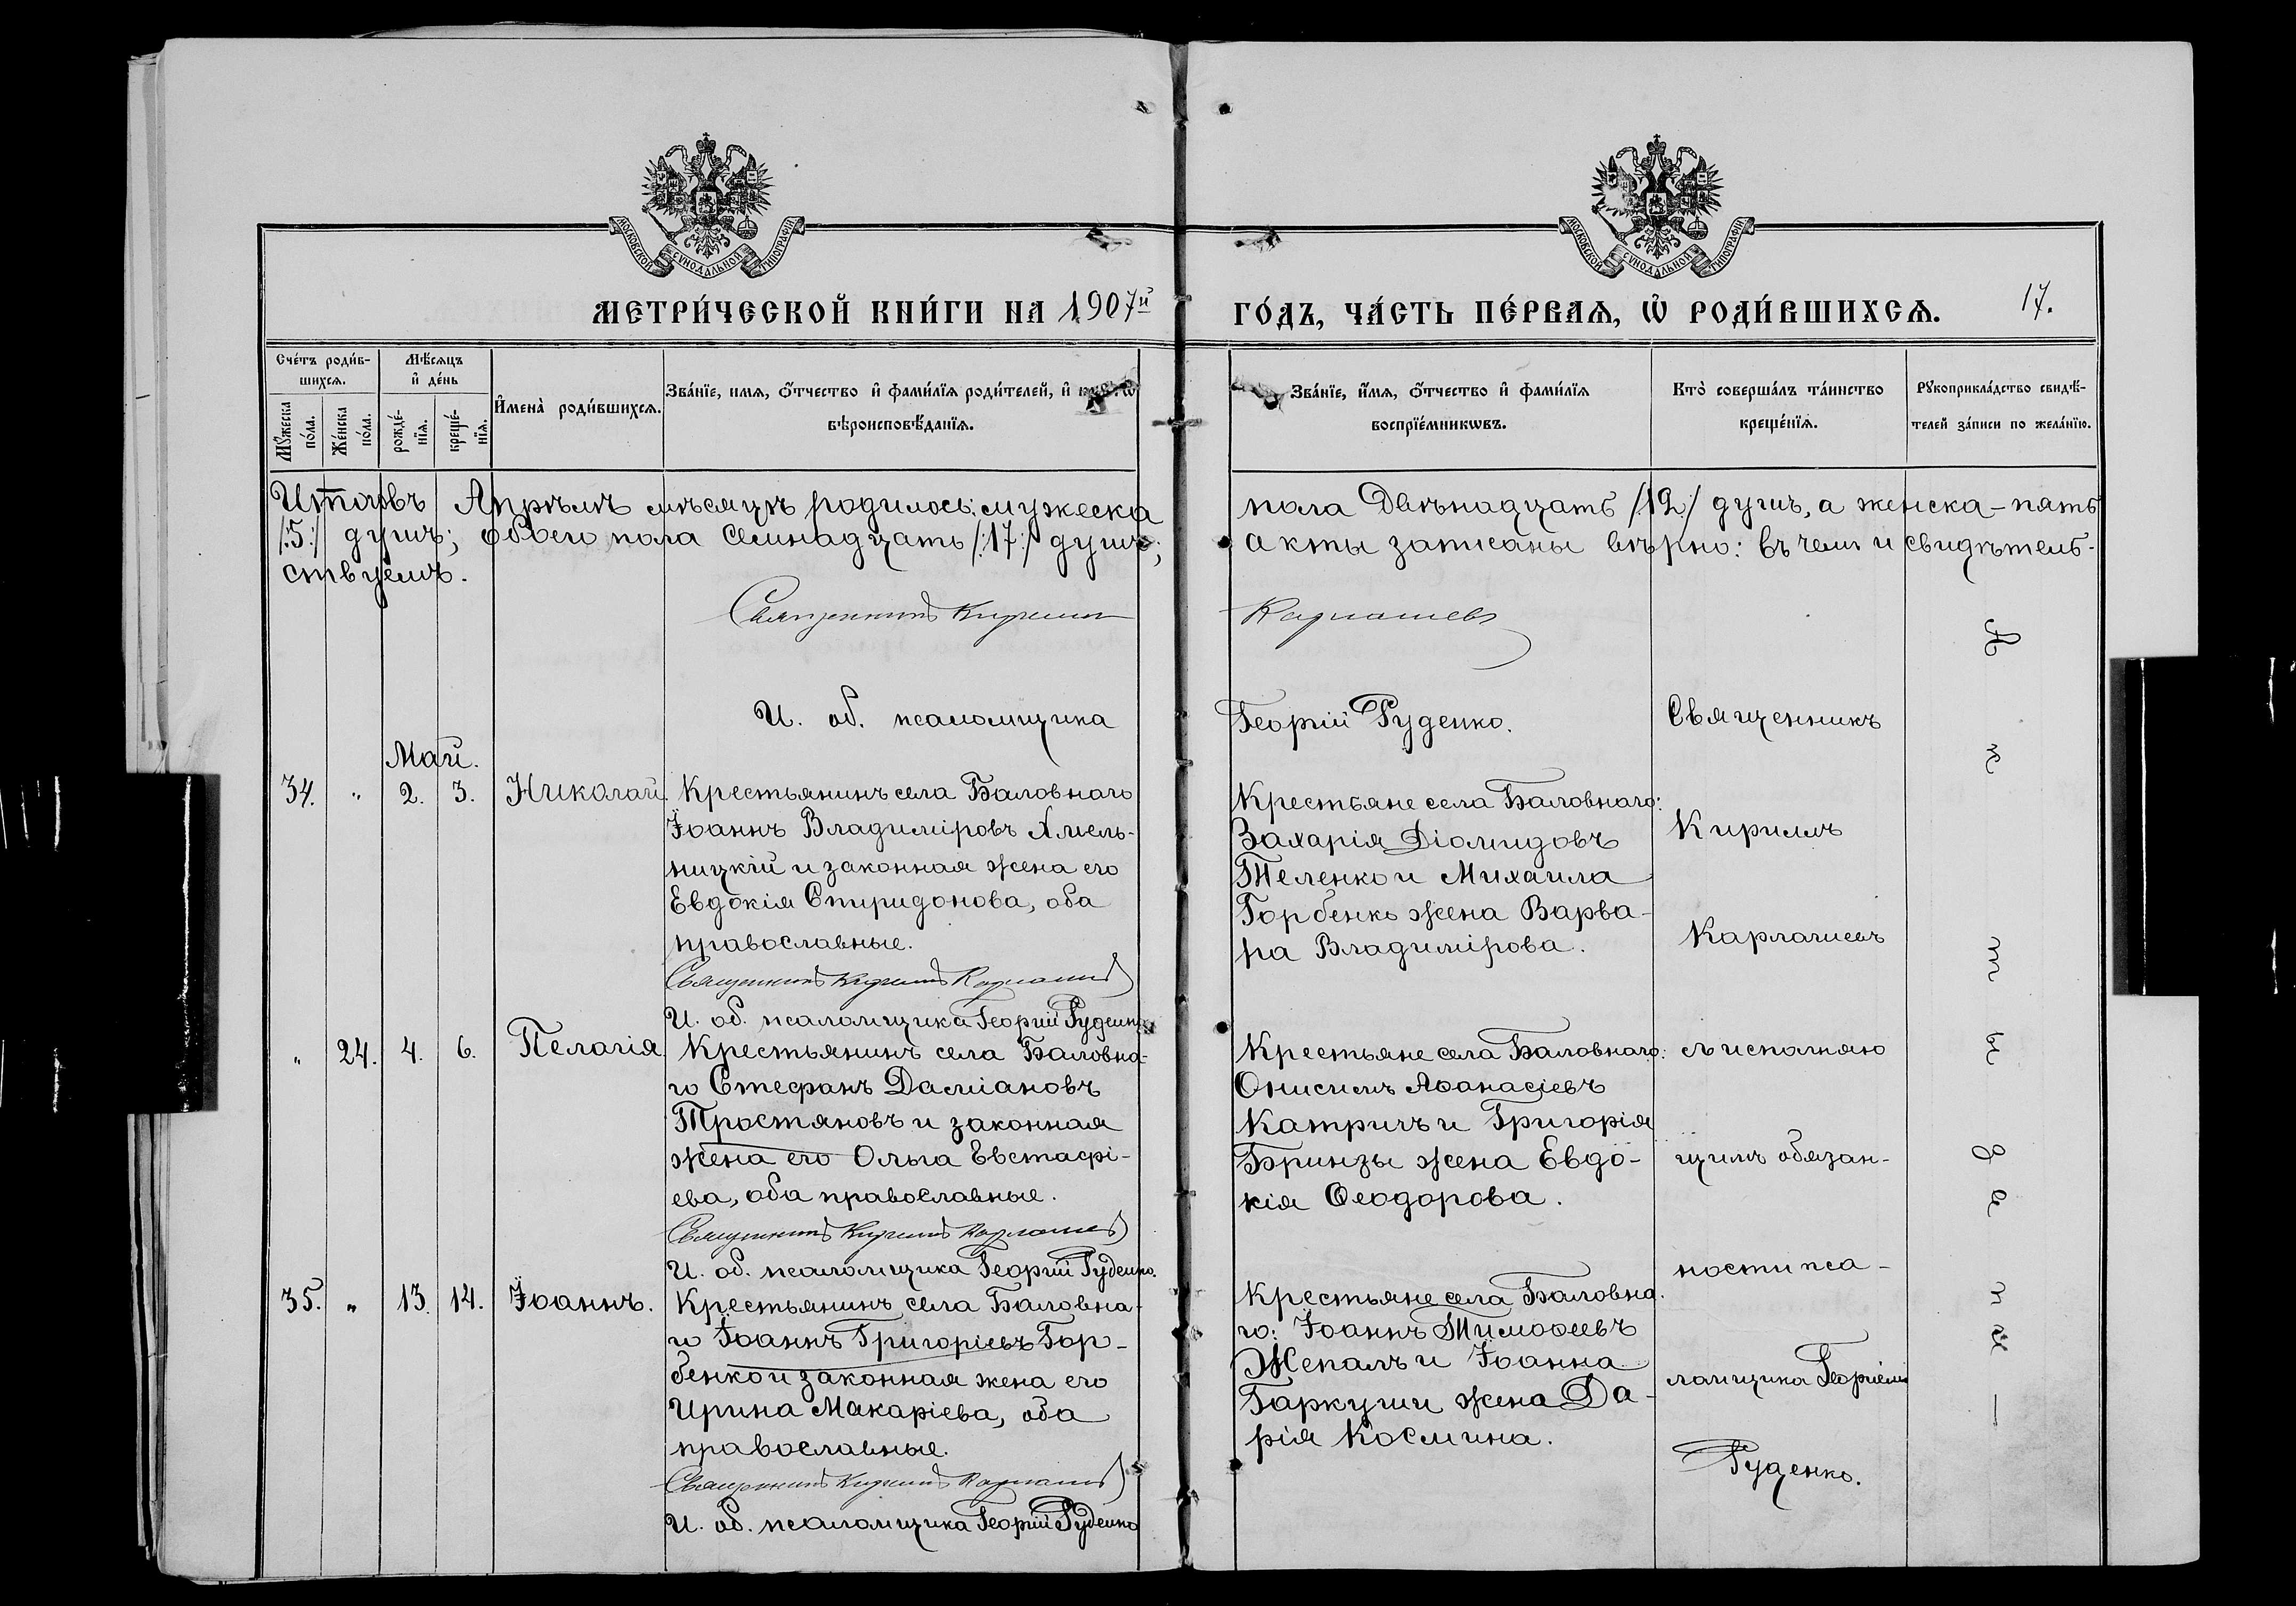 МОСКОВСКОЙ СѴНОДАЛЬНОЙ ТИПОГРАФІИ
МОСКОВСКОЙ СѴНОДАЛЬНОЙ ТИПОГРАФІИ
МЕТРИ́ЧЕСКОЙ КНИ́ГИ НА 1907й
ГО́ДЪ, ЧА́СТЬ ПЕ́РВАѦ, Ѡ҆ РОДИ́ВШИХСѦ.
17.
Сче́тъ роди́в-
шихсѧ.
Мѣ́сѧцъ
и҆ де́нь
Мꙋ́жеска
по́ла.
Же́нска
по́ла.
рожде́-
нїѧ.
креще́-
нїѧ.
И҆мена̀ роди́вшихсѧ.
Зва́нїе, имѧ, ѻ҆́тчество и҆ фами́лїѧ роди́телей, и҆
вѣроисповѣ́данїѧ.
Зва́нїе, и҆́мѧ, ѻ҆́тчество и҆ фами́лїѧ
воспрїе́мникѡвъ.
Кто̀ соверша́лъ та́инство
креще́нїѧ.
Рꙋкоприкла́дство свидѣ́-
телей за́писи по жела́нїю.
Итого въ Апрѣлѣ мѣсяцѣ родилось: мужеска
пола Двѣнадцать /:12:/ душъ, а женска – пять
/:5:/ душъ; обоего пола Семнадцать /:17:/ душъ;
акты записаны вѣрно: въ чемъ и свидѣтель-
ствуемъ.
Священникъ Кириллъ
Карлашевъ
И. об. псаломщика
Георгій Руденко.
Май.
34. " 2. 3. Николай.
Крестьянинъ села Баловнаго
Іоаннъ Владиміровъ Хмель-
ницкій и законная жена его
Евдокія Спиридонова, оба
православные.
Священникъ Кириллъ Карлашевъ
И. об. псаломщика Георгій Руденко
Крестьяне села Баловнаго:
Захарія Діомидовъ
Теленко и Михаила
Горбенко женаВарва-
ра Владимірова.
" 24. 4. 6. Пелагія.
Крестьянинъ села Баловна-
го Стефанъ Даміановъ
Тростяновъ и законная
жена его Ольга Евстафі-
ева, оба православные.
Священникъ Кириллъ Карлашевъ
И. об. псаломщика Георгій Руденко.
Крестьяне села Баловнаго:
Онисимъ Аѳанасіевъ
Катричъ и Григорія
Бринзы жена Евдо-
кія Ѳеодорова.
35. " 13. 14. Іоаннъ.
Крестьянинъ села Баловна-
го Іоаннъ Григоріевъ Гор-
бенко и законная жена его
Ирина Макаріева, оба
православные.
Священникъ Кириллъ Карлашевъ
И. об. псаломщика Георгій Руденко
Крестьяне села Баловна-
го: Іоаннъ Тимоѳеевъ
Жепалъ и Іоанна
Гаркуши жена Да-
рія Космина.
Священникъ
Кириллъ
Карлашевъ
съ исполняю
щимъ обязан-
ности пса-
ломщика Георгіемъ
Руденко.